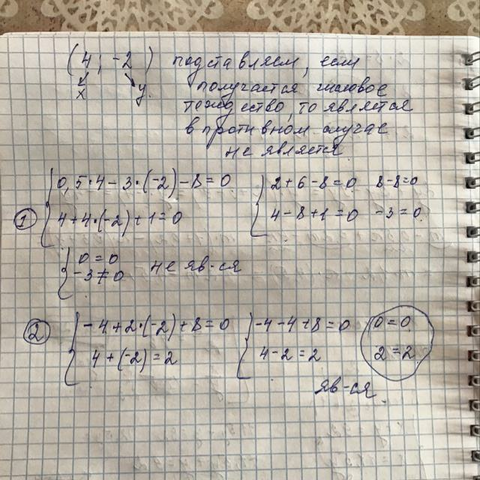 (4; -2) подставляем, если
x y. получается числовое
тождество, то является
в противном случае
не является.
① { 0,5·4-3·(-2)-8=0 { 2+6-8=0 8-8=0
4+4·(-2)+1=0 4-8+1=0 -3=0
{ 0=0 не яв-ся
-3≠0
② { -4+2·(-2)+8=0 { -4-4+8=0 0=0
4+(-2)=2 4-2=2 2=2
яв-ся.